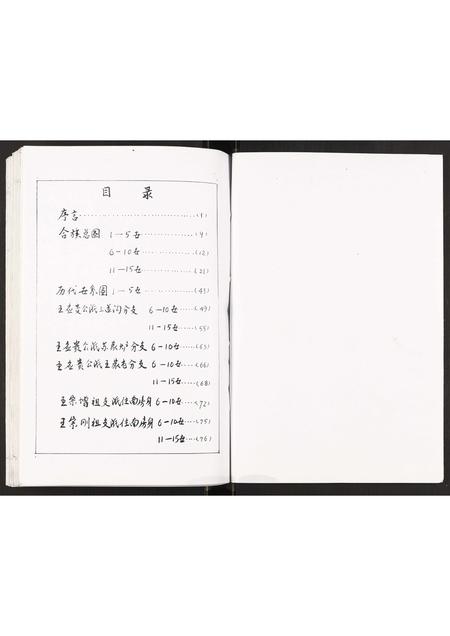 目 录
序言……………………(1)
合族总图 1—5世……………(4)
6—10世……………(12)
11—15世……………(21)
历代世系图 1—5世……………(43)
王孟贵公派三道沟分支 6—10世……(49)
11—15世……(55)
王孟贵公派苏家炉分支 6—10世……(63)
王孟贵公派王家老分支 6—10世……(66)
11—15世……(68)
王崇增祖支派住南房身 6—10世……(72)
王崇刚祖支派住南房身 6—10世……(75)
11—15世……(76)